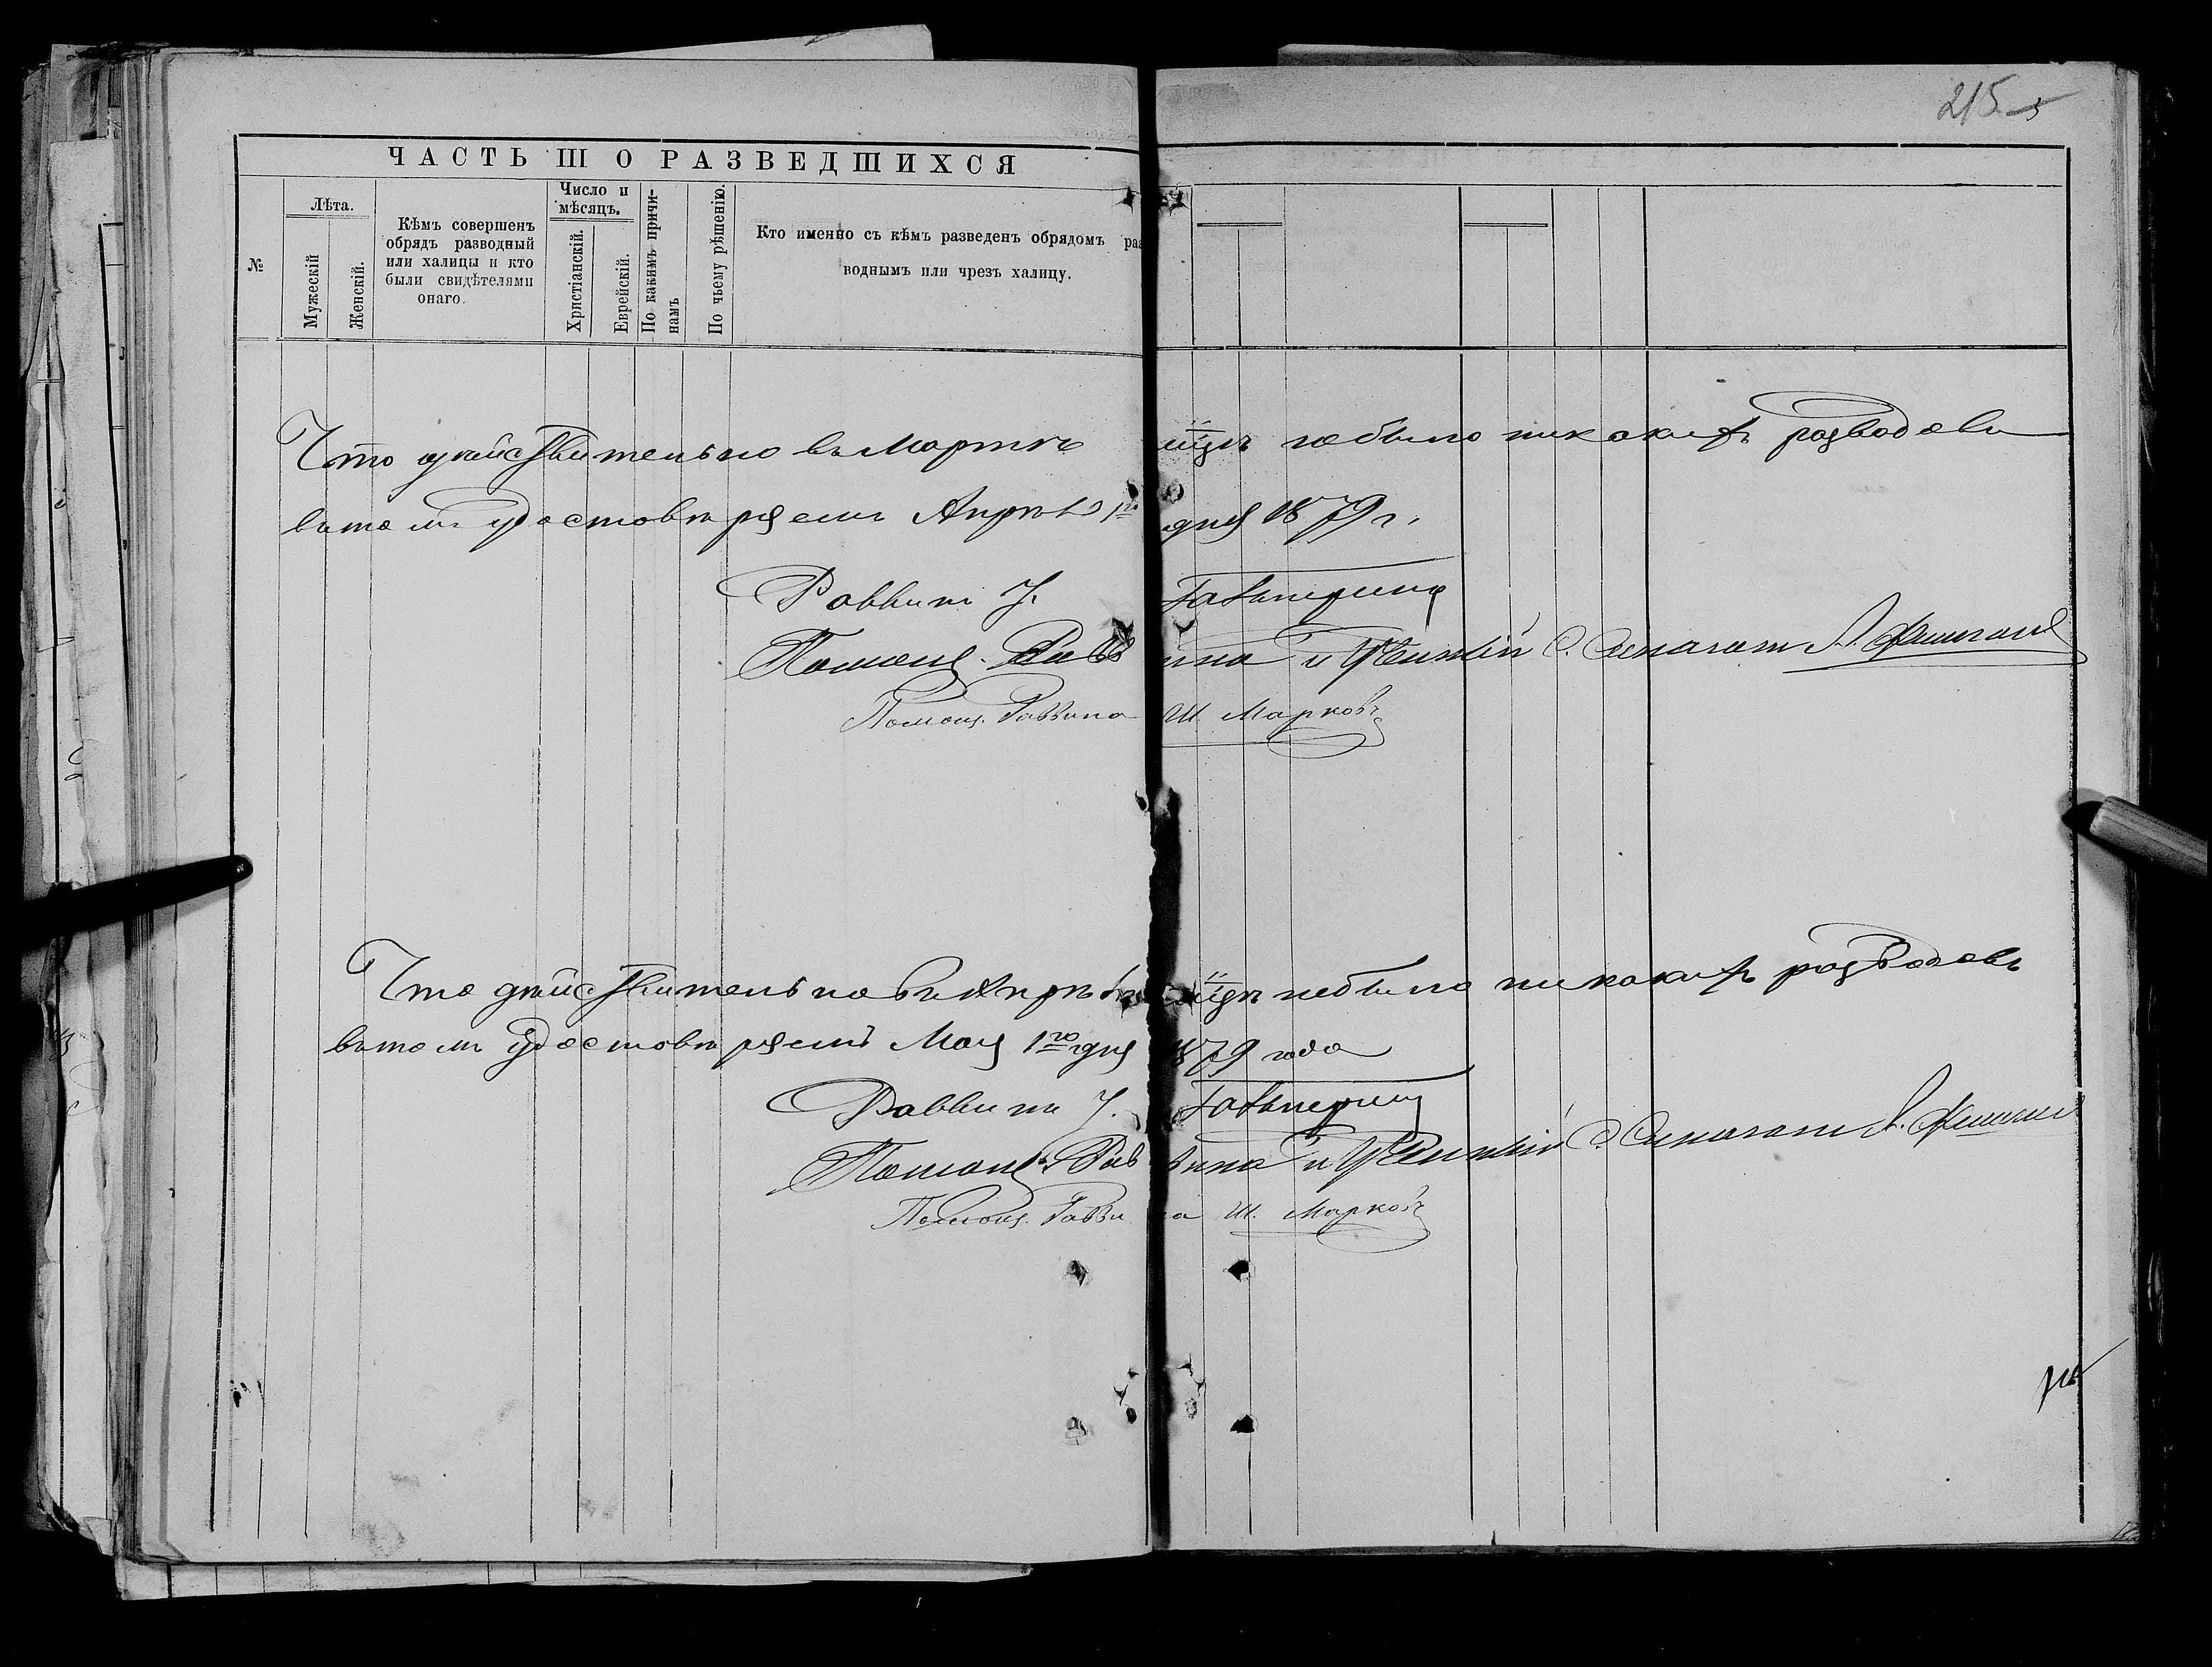 215
ЧАСТЬ III О РАЗВЕДШИХСЯ
№
Лѣта.
Мужескій
Женскій.
Кѣмъ совершенъ
обрядъ разводный
или халицы и кто
были свидѣтелями
онаго.
Число и
мѣсяцъ.
Христіанскій.
Еврейскій.
По какимъ причи-
намъ
По чьему рѣшенію.
Кто именно съ кѣмъ разведенъ обрядомъ раз
воднымъ или чрезъ халицу.
Что дѣйствительно въ Мартѣ мѣцѣ небыло никакихъ разводовъ
въ томъ удостовѣряемъ Апрѣля 1го дня 1879 г.
Раввинъ Гальперинъ
Помощ. Раввина и С. Синагоги
Помощ. Раввина Ш. Марковъ
Что дѣйствительно въ Апрѣлѣ мѣцѣ небыло никакихъ разводовъ
въ томъ удостовѣряемъ Мая 1го дня 1879 года
Раввинъ Гальперинъ
Помощ. Раввина и С. Синагоги
Помощ. Раввина Ш. Марковъ